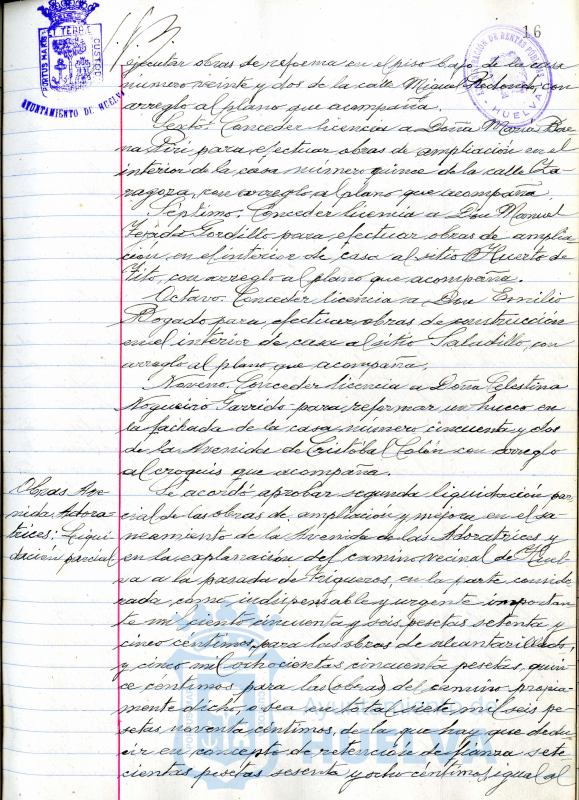 16
PORTUS MARIS ET TERRE CUSTODIA
AYUNTAMIENTO DE HUELVA
HUELVA
ejecutar obras de reforma en el piso bajo de la casa
número veinte y dos de la calle Miguel Redondo, con
arreglo al plano que acompaña.
Sexto. Conceder licencia a Doña María Bae-
na para efectuar obras de ampliación en el
interior de la casa número quince de la calle Za-
ragoza, con arreglo al plano que acompaña.
Séptimo. Conceder licencia a Don Manuel
Gordillo para efectuar obras de amplia-
ción en el interior de casa al sitio Huerto de
Tito, con arreglo al plano que acompaña.
Octavo. Conceder licencia a Don Emilio
Rogado para efectuar obras de construcción
en el interior de casa al sitio Saladillo, con
arreglo al plano que acompaña.
Noveno. Conceder licencia a Doña Celestina
Nogueiro Garrido para reformar un hueco en
la fachada de la casa número cincuenta y dos
de la Avenida de Cristóbal Colón con arreglo
al croquis que acompaña.
Obras Ave-
nida Adora-
trices: Liqui-
dación parcial
Se acordó aprobar segunda liquidación par-
cial de las obras de ampliación y mejora en el sa-
neamiento de la Avenida de las Adoratrices y
en la explanación del camino vecinal de Huel-
va a la pasada de Trigueros, en la parte conside-
rada como indispensable y urgente importan-
te mil ciento cincuenta y seis pesetas setenta y
cinco céntimos para las obras de alcantarillado,
y cinco mil ochocientas cincuenta pesetas, quin-
ce céntimos para las obras del camino propia-
mente dicho, o sea en total siete mil seis pe-
setas noventa céntimos, de la que hay que dedu-
cir en concepto de retención de fianza sete-
cientas pesetas sesenta y ocho céntimos, igual al
Ayuntamiento de
HUELVA